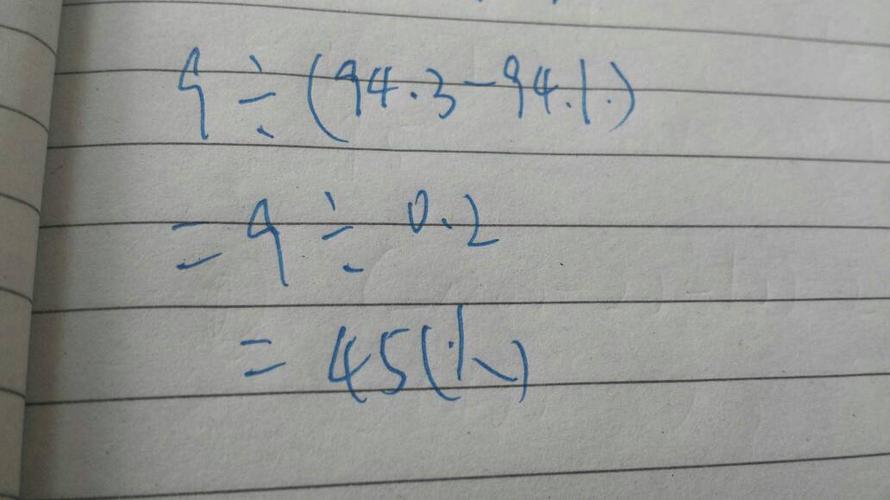 9÷(94.3-94.1)
=9÷0.2
=45(人)